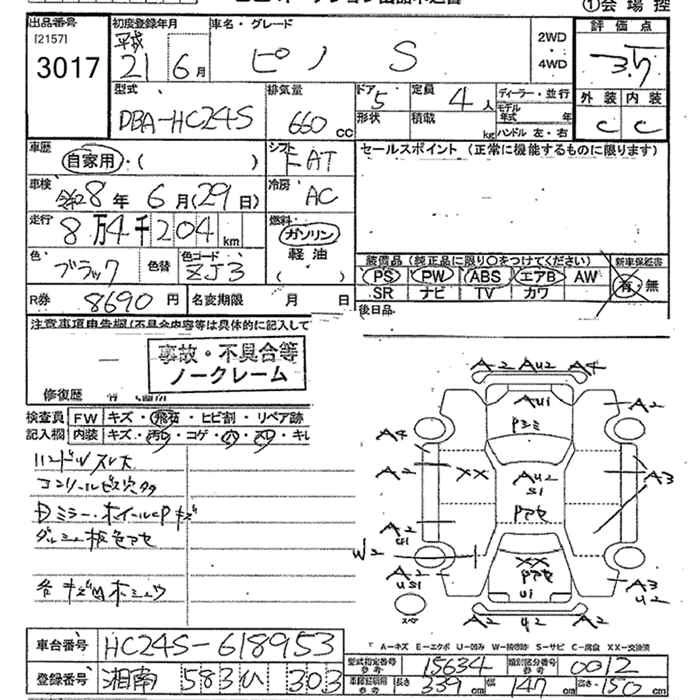 ①会場控
出品番号
[2157]
3017
初度登録年月
平成
21 6月
車名・グレード
ピノ S
2WD
・
4WD
評価点
3.5
外装 内装
C C
型式
DBA-HC24S
排気量
660 cc
ドア 5
形状
定員 4 人
積載 kg
ディーラー・並行
モデル年式 年
ハンドル 左・右
車歴
自家用・( )
シフト
FAT
セールスポイント(正常に機能するものに限ります)
車検
令和8年 6月(29日)
冷房
AC
走行
8万4千204km
燃料
ガソリン
軽油
( )
色
ブラック
色替
色コード
ZJ3
装備品(純正品に限り○をつけてください)
PS PW ABS エアB AW
SR ナビ TV カワ
新車保証書
有・無
R券 8690円
名変期限 月 日
後日品
注意事項申告欄(不具合内容等は具体的に記入して
事故・不具合等
ノークレーム
修復歴
検査員 FW キズ・飛石・ヒビ割・リペア跡
記入欄 内装 キズ・汚レ・コゲ・穴・スレ・キレ
ハンドルスレ大
Dミラー・ホイールCPキズ
A2 AU2 A4
AU1
A2
A4
A2
XX
AU2
S1
A3
A2
W2
XX
A3
U2
U1
A2
スペア
A-キズ E-エクボ U-凹み W-補修跡 S-サビ C-腐食 XX-交換済
車台番号 HC24S-618953
型式指定番号 15634 類別区分番号 0012
登録番号 湘南 583 い 303
長さ 339cm 幅 147cm 高さ 150cm